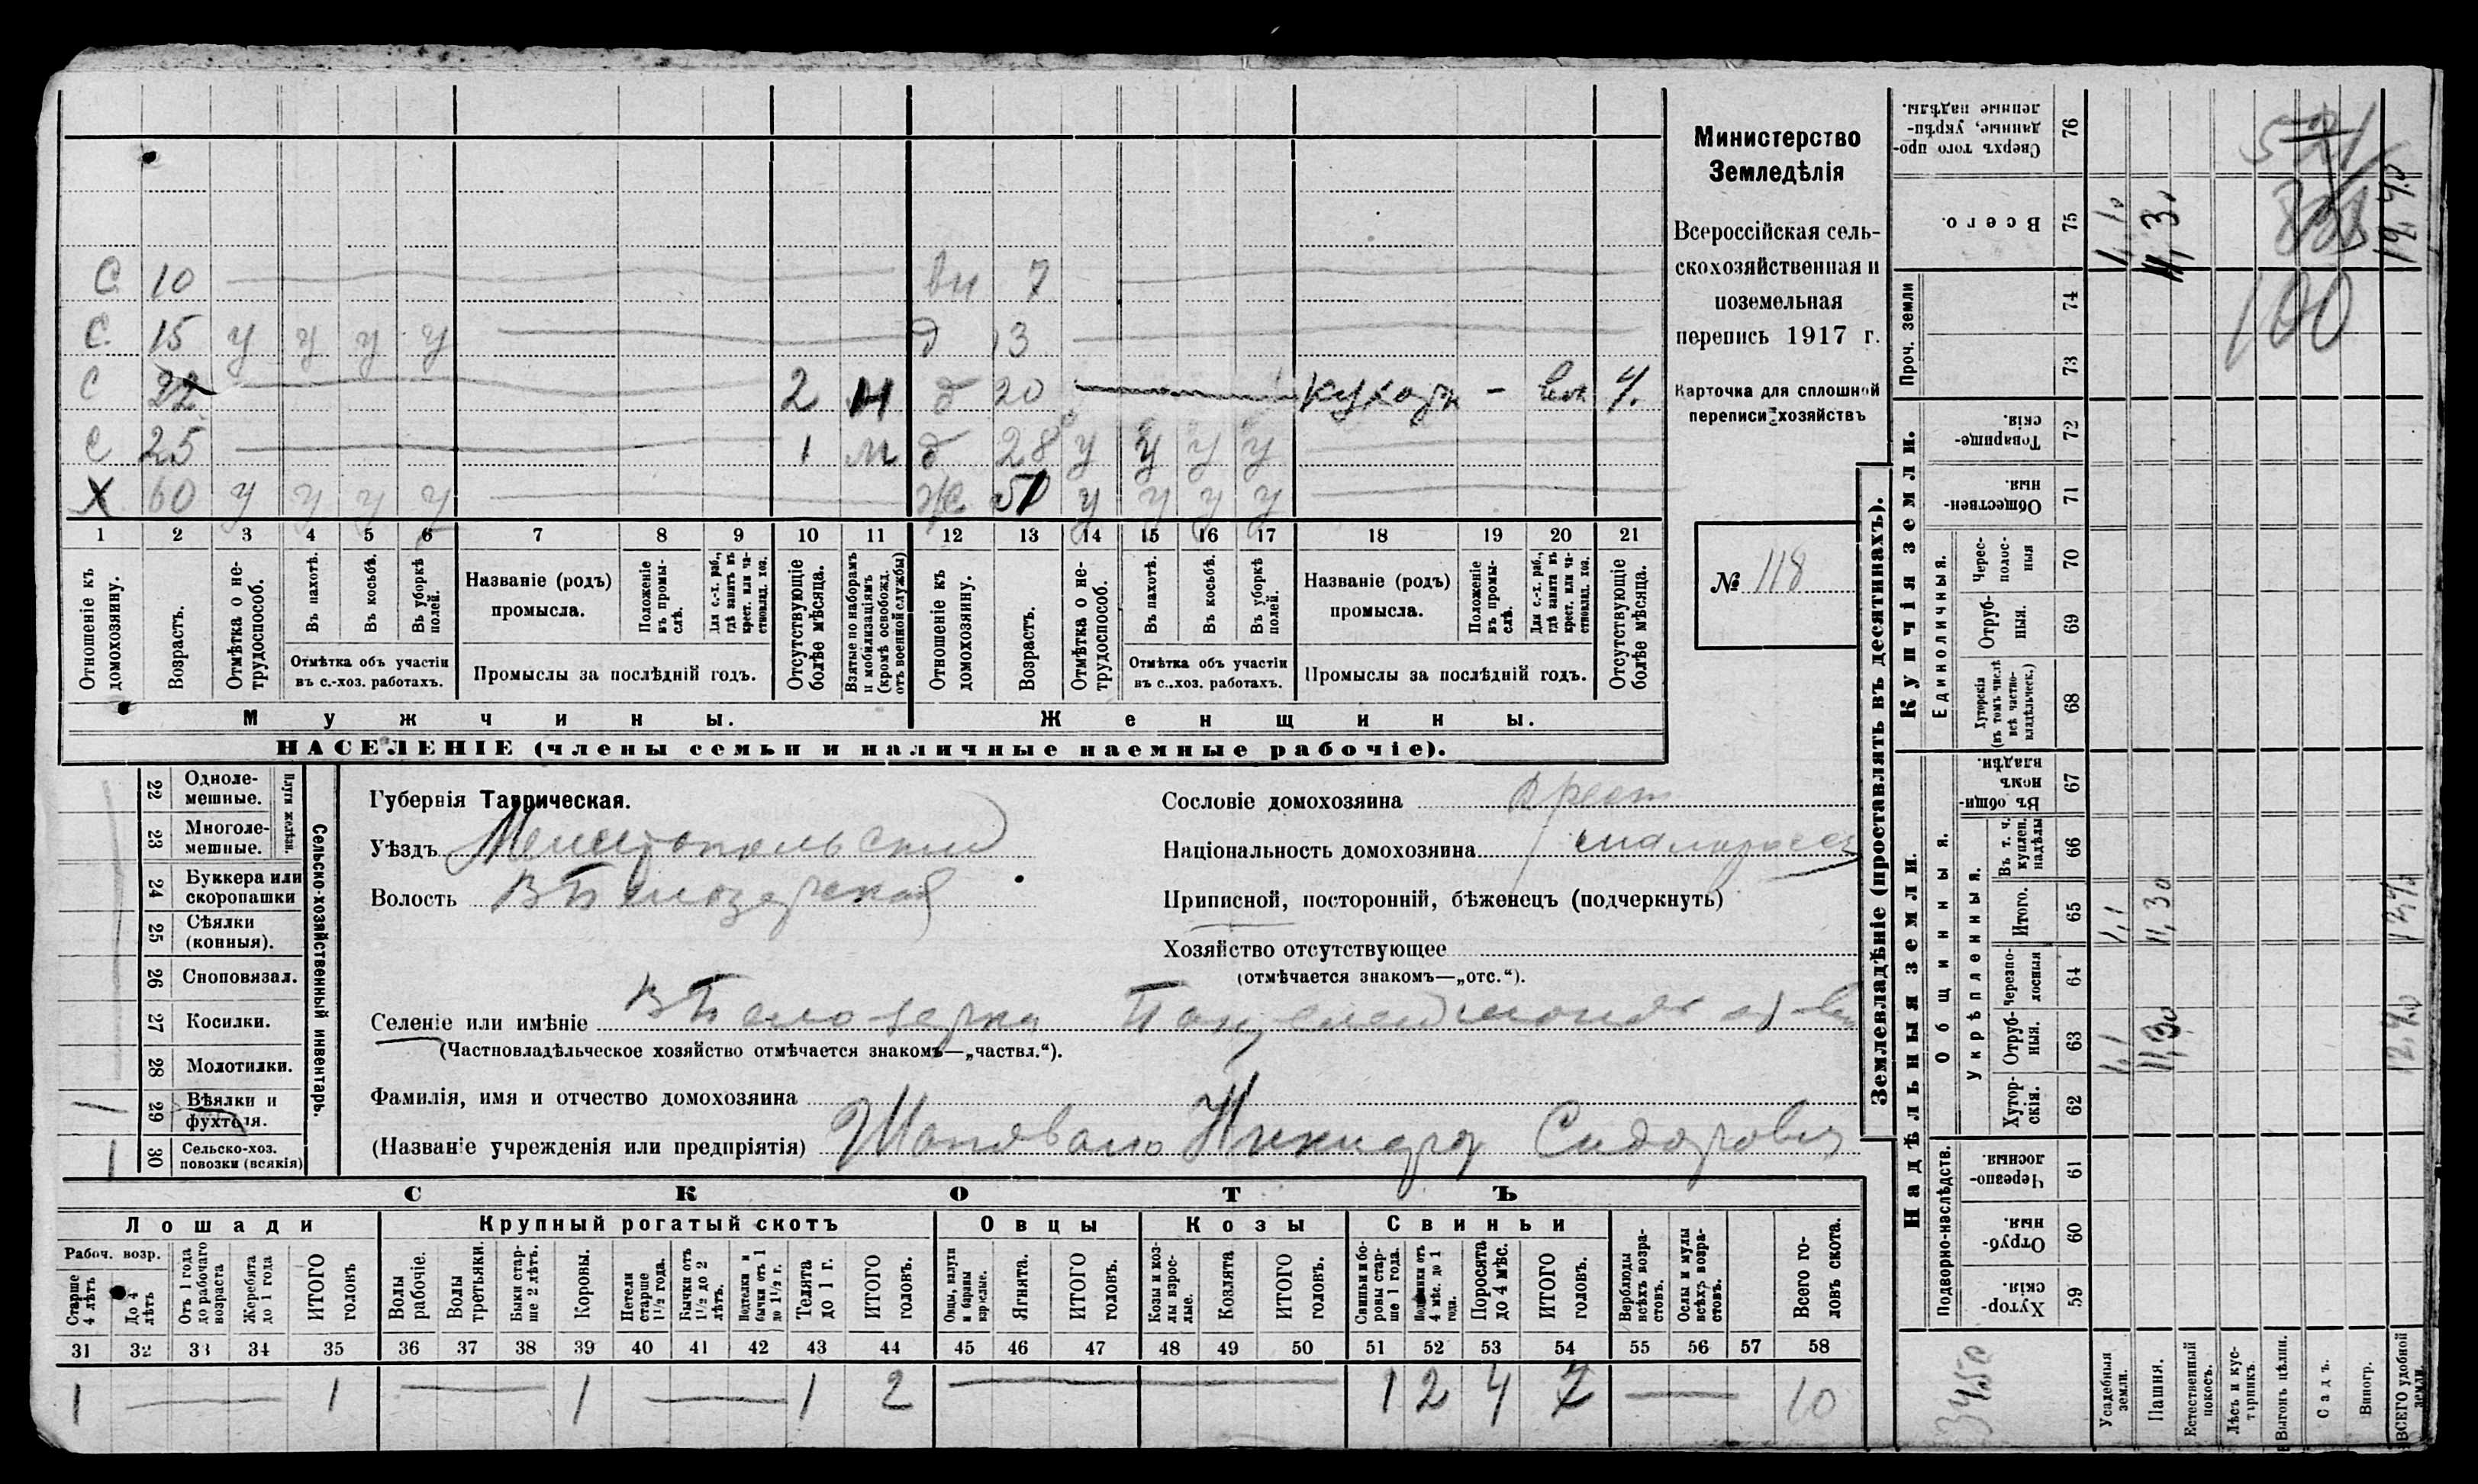 С 10 вн 7
С 15 у у у у д 13
С 22 2 д 20 кухарк - 4
С 25 1 м д 28 у у у у
Х 60 у у у у Ж 51 у у у у
1 2 3 4 5 6 7 8 9 10 11 12 13 14 15 16 17 18 19 20 21
Отношеніе къ домохозяину.
Возрастъ.
Отмѣтка о не-трудоспособ.
Въ пахотѣ.
Въ косьбѣ.
Въ уборкѣ полей.
Отмѣтка объ участіи
въ с.-хоз. работахъ.
Названіе (родъ)
промысла.
Положеніе въ промы-слѣ.
Для с.-х. раб., гдѣ занятъ въ крест. или ча-стновлад. хоз.
Промыслы за послѣдній годъ.
Отсутствующіе болѣе мѣсяца.
Взятые по наборамъ и мобилизаціямъ (кромѣ освобожд. отъ военной службы)
Отношеніе къ домохозяину.
Возрастъ.
Отмѣтка о не-трудоспособ.
Въ пахотѣ.
Въ косьбѣ.
Въ уборкѣ полей.
Отмѣтка объ участіи
въ с.-хоз. работахъ.
Названіе (родъ)
промысла.
Положеніе въ промы-слѣ.
Для с.-х. раб., гдѣ занята въ крест. или ча-стновлад. хоз.
Промыслы за послѣдній годъ.
Отсутствующіе болѣе мѣсяца.
Мужчины. Женщины.
НАСЕЛЕНІЕ (члены семьи и наличные наемные рабочіе).
Министерство
Земледѣлія
Всероссійская сель-
скохозяйственная и
поземельная
перепись 1917 г.
Карточка для сплошной
переписи хозяйствъ
№ 118
22 Одноле-мешные.
23 Многоле-мешные.
Плуги желѣзн.
24 Буккера или скоропашки
25 Сѣялки (конныя).
26 Сноповязал.
27 Косилки.
28 Молотилки.
29 Вѣялки и фухтеля. 1
30 Сельско-хоз. повозки (всякія) 1
Сельско-хозяйственный инвентарь.
Губернія Таврическая.
Уѣздъ Мелитопольскій
Волость Бѣлозерская
Сословіе домохозяина крест
Національность домохозяина малоросс
Приписной, посторонній, бѣженецъ (подчеркнуть)
Хозяйство отсутствующее
(отмѣчается знакомъ—„отс.“).
Селеніе или имѣніе Бѣлозерка
(Частновладѣльческое хозяйство отмѣчается знакомъ—„частвл.“).
Фамилія, имя и отчество домохозяина
(Названіе учрежденія или предпріятія) Шаповало Никифор Сидорович
СКОТЪ
Лошади Крупный рогатый скотъ Овцы Козы Свиньи
Рабоч. возр.
Старше 4 лѣтъ
До 4 лѣтъ
Отъ 1 года до рабочаго возраста
Жеребята до 1 года
ИТОГО головъ
Волы рабочіе.
Волы третьяки.
Быки стар-ше 2 лѣтъ.
Коровы.
Нетели старше 1½ года.
Бычки отъ 1½ до 2 лѣтъ.
Подтелки и бычки отъ 1 до 1½ г.
Телята до 1 г.
ИТОГО головъ.
Овцы, валухи и бараны взрослые.
Ягнята.
ИТОГО головъ.
Козы и коз-лы взрос-лые.
Козлята
ИТОГО головъ.
Свиньи и бо-ровы стар-ше 1 года.
Подсвинки отъ 4 мѣс. до 1 года.
Поросята до 4 мѣс.
ИТОГО головъ.
Верблюды всѣхъ возра-стовъ.
Ослы и мулы всѣхъ возра-стовъ.
Всего го-ловъ скота.
31 32 33 34 35 36 37 38 39 40 41 42 43 44 45 46 47 48 49 50 51 52 53 54 55 56 57 58
1 1 1 1 2 1 2 4 7 10
Землевладѣніе (проставлять въ десятинахъ).
Купчія земли.
Надѣльныя земли.
Проч. земли
Единоличныя.
Общинныя.
Укрѣпленныя.
Подворно-наслѣдств.
Сверхъ того про-данные, укрѣп-ленные надѣлы. 76
Всего. 75
74
73
Товарище-скія. 72
Обществен-ныя. 71
Черес-полос-ныя 70
Отруб-ныя. 69
Хуторскія (въ томъ числѣ всѣ частно-владѣльческ.) 68
Въ общин-номъ владѣн. 67
Въ т. ч. куплен. надѣлы 66
Итого. 65
Черезпо-лосныя 64
Отруб-ныя. 63
Хутор-скія. 62
Черезпо-лосныя. 61
Отруб-ныя. 60
Хутор-скія. 59
Усадебныя земли.
Пашня.
Естественный покосъ.
Лѣсъ и кус-тарникъ.
Выгонъ цѣлин.
Садъ.
Виногр.
ВСЕГО удобной земли.
1,1 11,30
1,1 11,30
100
3450